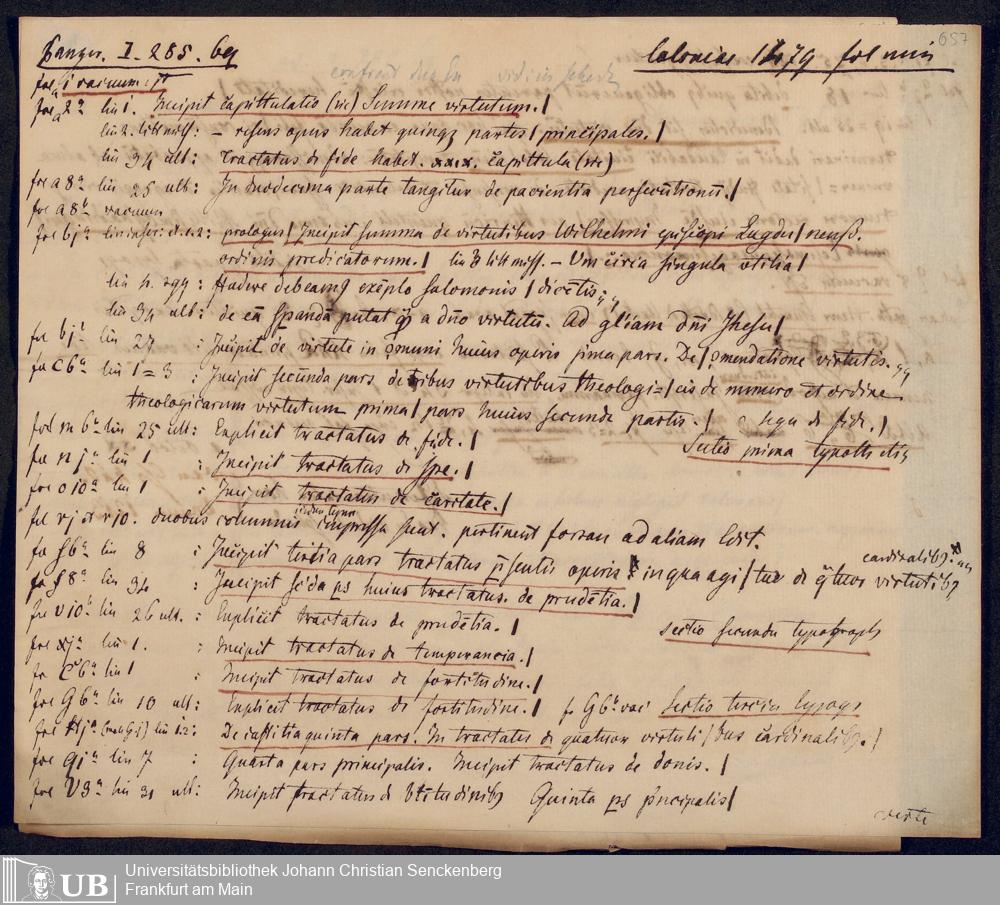 657
Panzer. I. 285. 69 Coloniae 1479 fol min
fol 1 vacuum: et
fol a 2a lin 1. Incipit Capittulatio (sic) Summe virtutum. /
lin 2. litt miss: – resens opus habet quinqz partes / principales. /
lin 34 ult: Tractatus de fide habet. xxix. Capittula (sic)
fol a 8a lin 25 ult: In duodecima parte tangitur de pacientia persecutionum. /
fol a 8b vacuum
fol bja prologus / Incipit summa de virtutibus Wilhelmi episcopi Lugdu / nenß.
ordinis predicatorum. / lin 3 litt miss. – Um circa singula utilia /
lin 4. sqq: tradere debeamq exēplo salomonis / dicētis
lin 34 ult: de eū a dn̄o virtutū. Ad gl̄iam dn̄i Jhesu /
fol bjb lin 27 : Incipit de virtute in ꝯmuni huius operis prima pars. De / ꝯmendatione virtutis.
fol C6a lin 1=3 : Incipit secūnda pars de tribus virtutibus theologi= / cis de numero et ordine
theologicarum virtutum prima / pars huius secunde partis. / de fide. /
fol m 6b lin 25 ult: Explicit tractatus de fide. / Sectio prima
fol n ja lin 1 : Incipit tractatus de spe. /
fol o 10a lin 1 : Incipit tractatus de caritate. /
fol rj et r10. duobus columnis impressa sunt. pertinent forsan ad aliam Edit.
fol s6a lin 8 : Incipit tercia pars tractatus p̄sentis operis in qua agi / tur de q̄tuor virtutibꝫ cardinalibꝫ.
fol s8a lin 34 : Incipit sc̄da ps huius tractatus. de prudētia. /
fol v10b lin 26 ult. : Explicit tractatus de prudētia. / Sectio secunda typograph
fol xja lin 1. : Incipit tractatus de temperancia. /
fol C6a lin 1 : Incipit tractatus de fortitudine. /
fol G6a lin 10 ult : Explicit tractatus de fortitudine. / f. G6b vac Sectio tercia typogr
fol Hja lin 1.2: De iustitia quinta pars. In tractatu de quatuor virtuti / bus cardinalibꝫ. /
fol Qja lin 7 : Quarta pars principalis. Incipit tractatus de donis. /
fol V3a lin 31 ult: Incipit tractatus de btitudinibꝫ Quinta ps principalis /
verte
Universitätsbibliothek Johann Christian Senckenberg
UB Frankfurt am Main